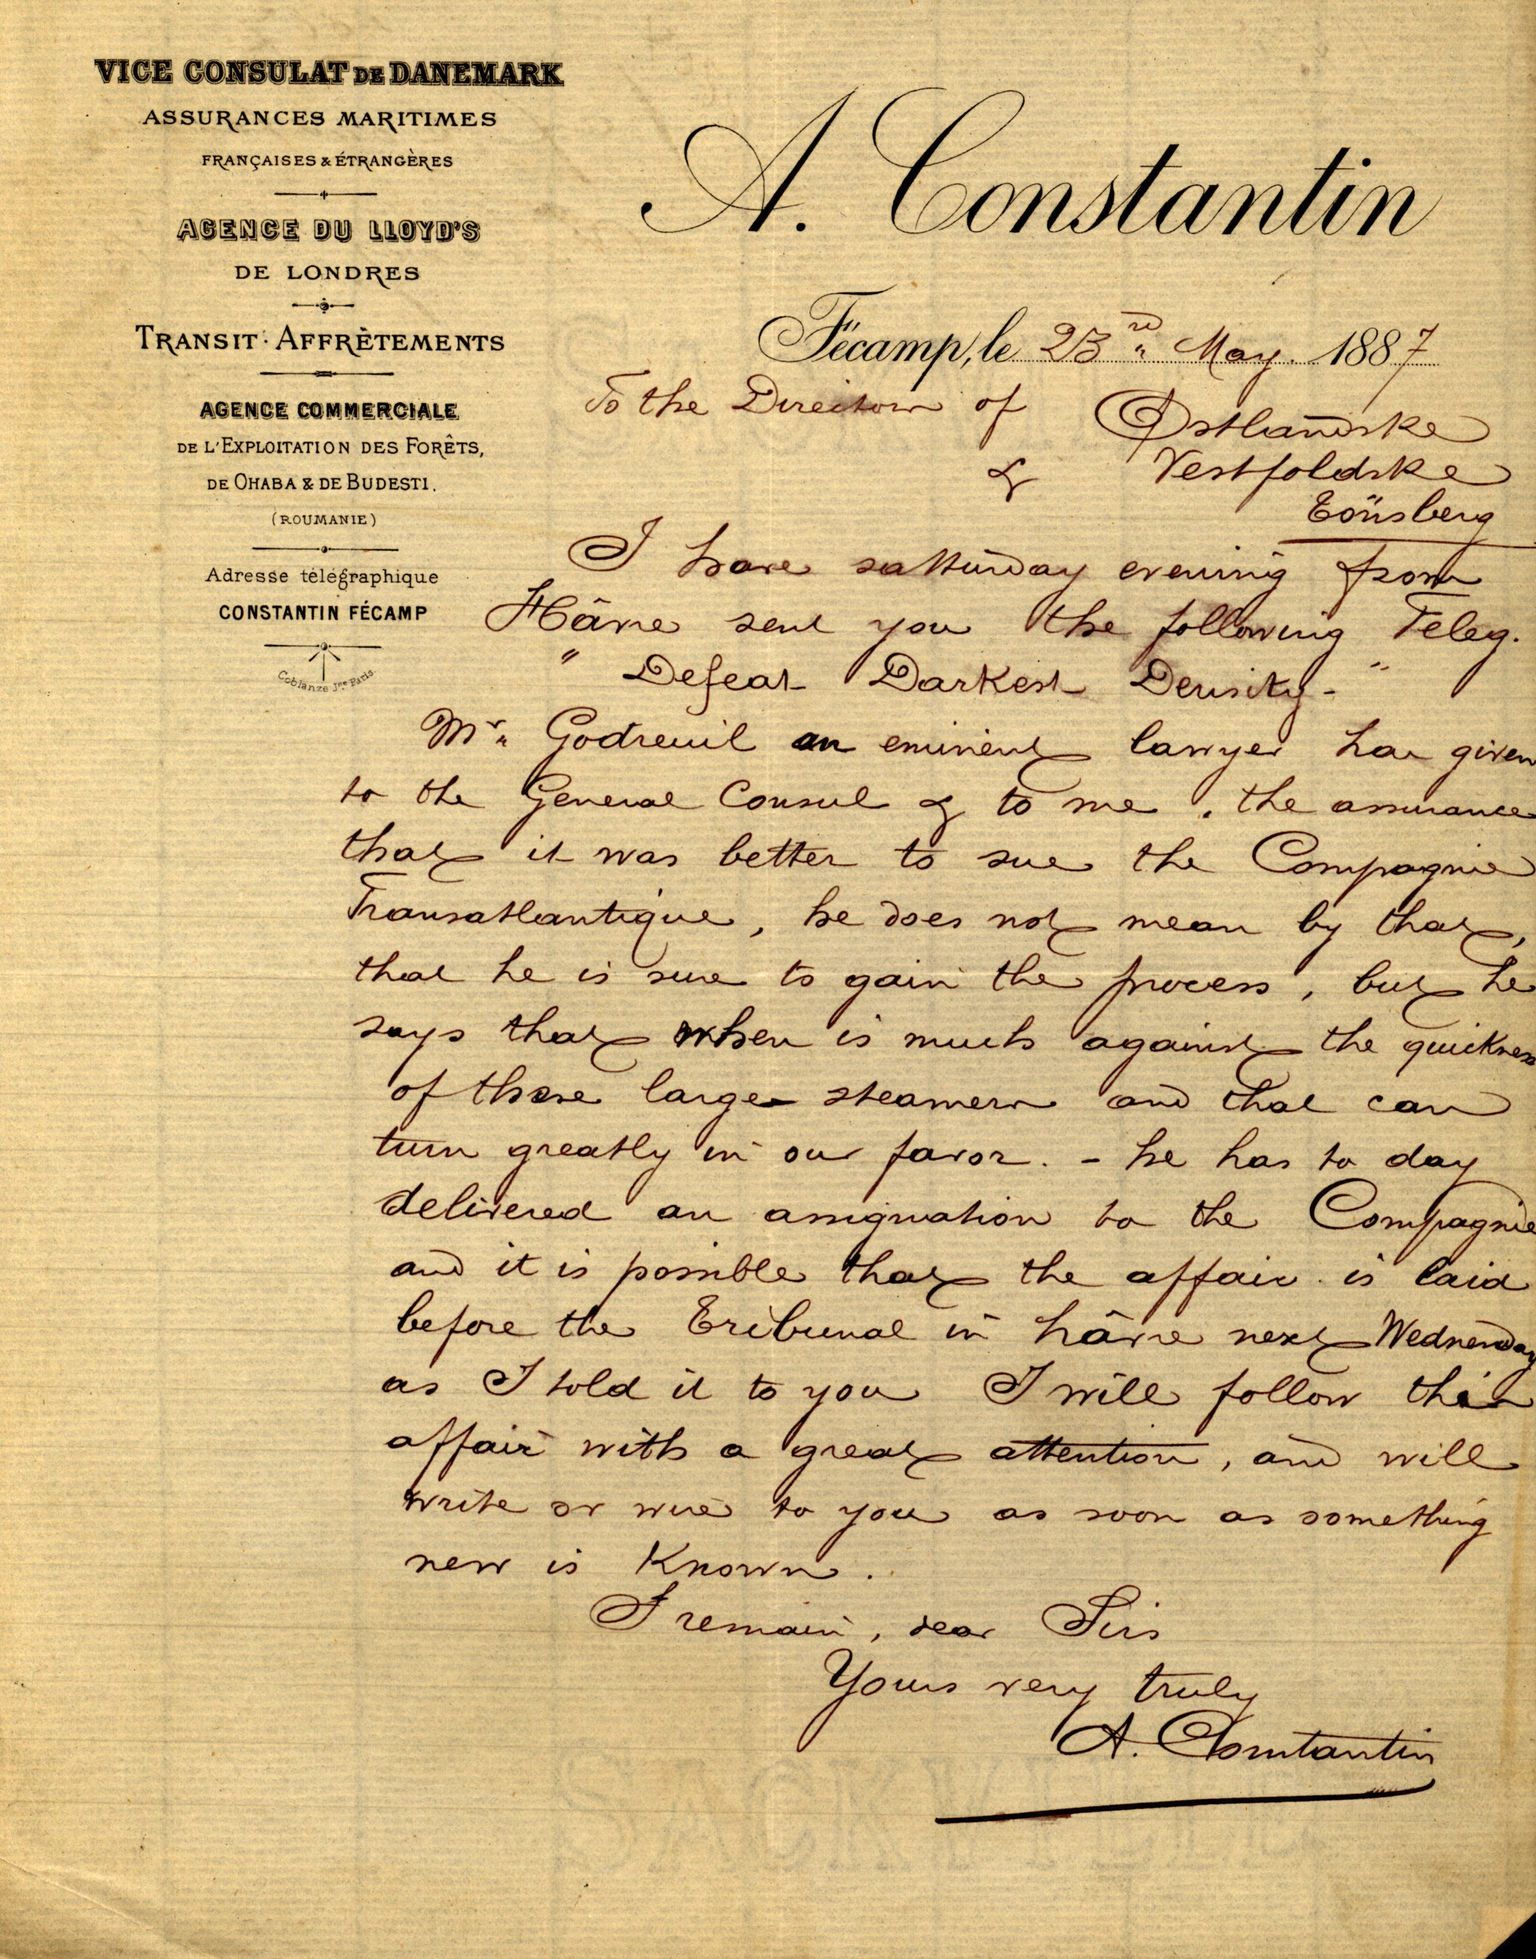 VICE CONSULAT DE DANEMARK
ASSURANCES MARITIMES
FRANÇAISES & ÉTRANGÈRES
AGENCE DU LLOYD'S
DE LONDRES
TRANSIT - AFFRÈTEMENTS
AGENCE COMMERCIALE
DE L'EXPLOITATION DES FORÊTS,
DE OHABA & DE BUDESTI.
(ROUMANIE)
Adresse télégraphique
CONSTANTIN FÉCAMP
Coblanze Jne Paris
A. Constantin
Fécamp, le 23rd May. 1887
To the Directors of Östlandske
& Vestfoldske
Tönsberg
I have satturday evening from
Hâvre sent you the following Teleg.
" Defeat Darkest Density - "
Mr. Godreuil an eminent lawyer has given
to the General Consul & to me, the assurance
that it was better to sue the Compagnie
Transatlantique, he does not mean by that,
that he is sure to gain the process, but he
says that when is much against the quickness
of these large steamers and that can
turn greatly in our favor. - he has to day
delivered an assignation to the Compagnie
and it is possible that the affair is laid
before the Tribunal in hâvre next Wednesday
as I told it to you I will follow this
affair with a great attention, and will
write or wire to you as soon as something
new is known.
I remain, dear Sirs
Yours very truly
A. Constantin